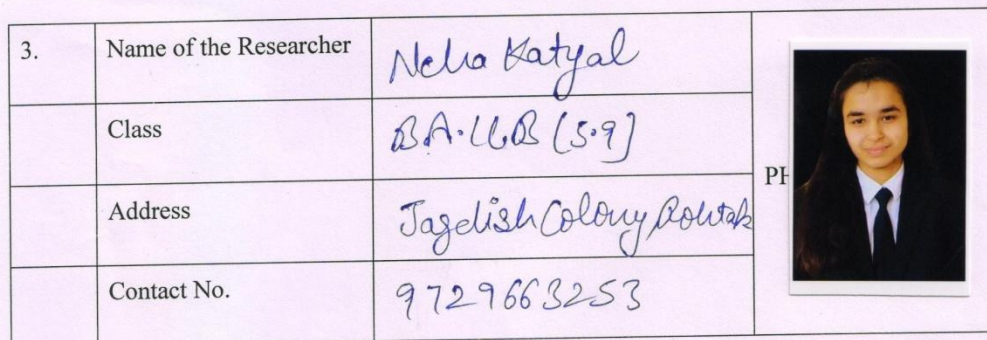 3. Name of the Researcher Neha Katyal
Class BA.LLB (5.9]
Address Jagdish Colony Rohtak
PH
Contact No. 9729663253